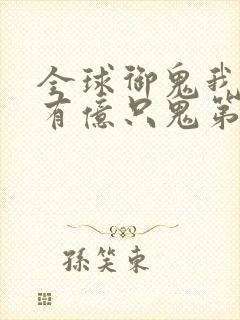 全球御鬼我
有億只鬼第
孫笑東